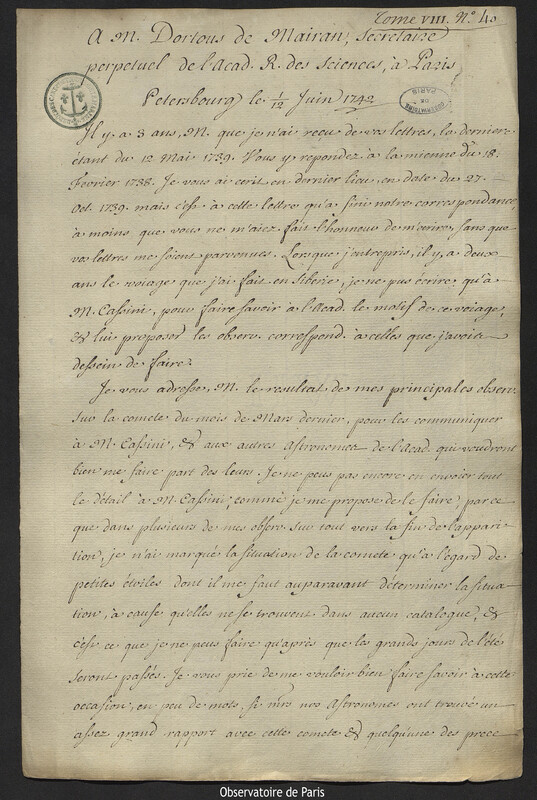 Tome VIII. N.º 40
A M. Dortous de Mairan, Secretaire
perpetuel de l'Acad. R. des Sciences, à Paris
Petersbourg le 1/12 Juin 1742
Il y a 3 ans, M. que je n'ai reçu de vos lettres, la derniere
étant du 12 Mai 1739. Vous y repondez à la mienne du 18.
Fevrier 1738. Je vous ai écrit en dernier lieu, en date du 27.
Oct. 1739. mais c'est à cette lettre qu'a fini notre correspondance,
à moins que vous ne m'aiez fait l'honneur de m'écrire, sans que
vos lettres me soient parvenues. Lorsque j'entrepris, il y a deux
ans le voiage que j'ai fait en Siberie, je ne pus écrire, qu'à
M. Cassini, pour faire savoir à l'Acad. le motif de ce voiage,
& lui proposer les observ. correspond. à celles que j'avois
dessein de faire.
Je vous adresse, M. le resultat de mes principales observ.
sur la comete du mois de Mars dernier, pour les communiquer
à M. Cassini, & aux autres Astronomes de l'Acad. qui voudront
bien me faire part des leurs. Je ne peus pas encore en envoier tout
le détail à M. Cassini, comme je me propose de le faire, parce
que dans plusieurs de mes observ. sur tout vers la fin de l'appari-
tion, je n'ai marqué la situation de la comete qu'à l'égard de
petites étoiles dont il me faut auparavant déterminer la situa-
tion, à cause qu'elles ne se trouvent dans aucun catalogue, &
c'est ce que je ne peus faire qu'après que les grands jours de l'été
seront passés. Je vous prie de me vouloir bien faire savoir à cette
occasion, en peu de mots, si mrs nos Astronomes ont trouvé un
assez grand rapport avec cette comete & quelqu'une des prece-
OBSERVATOIRE DE PARIS
Observatoire de Paris